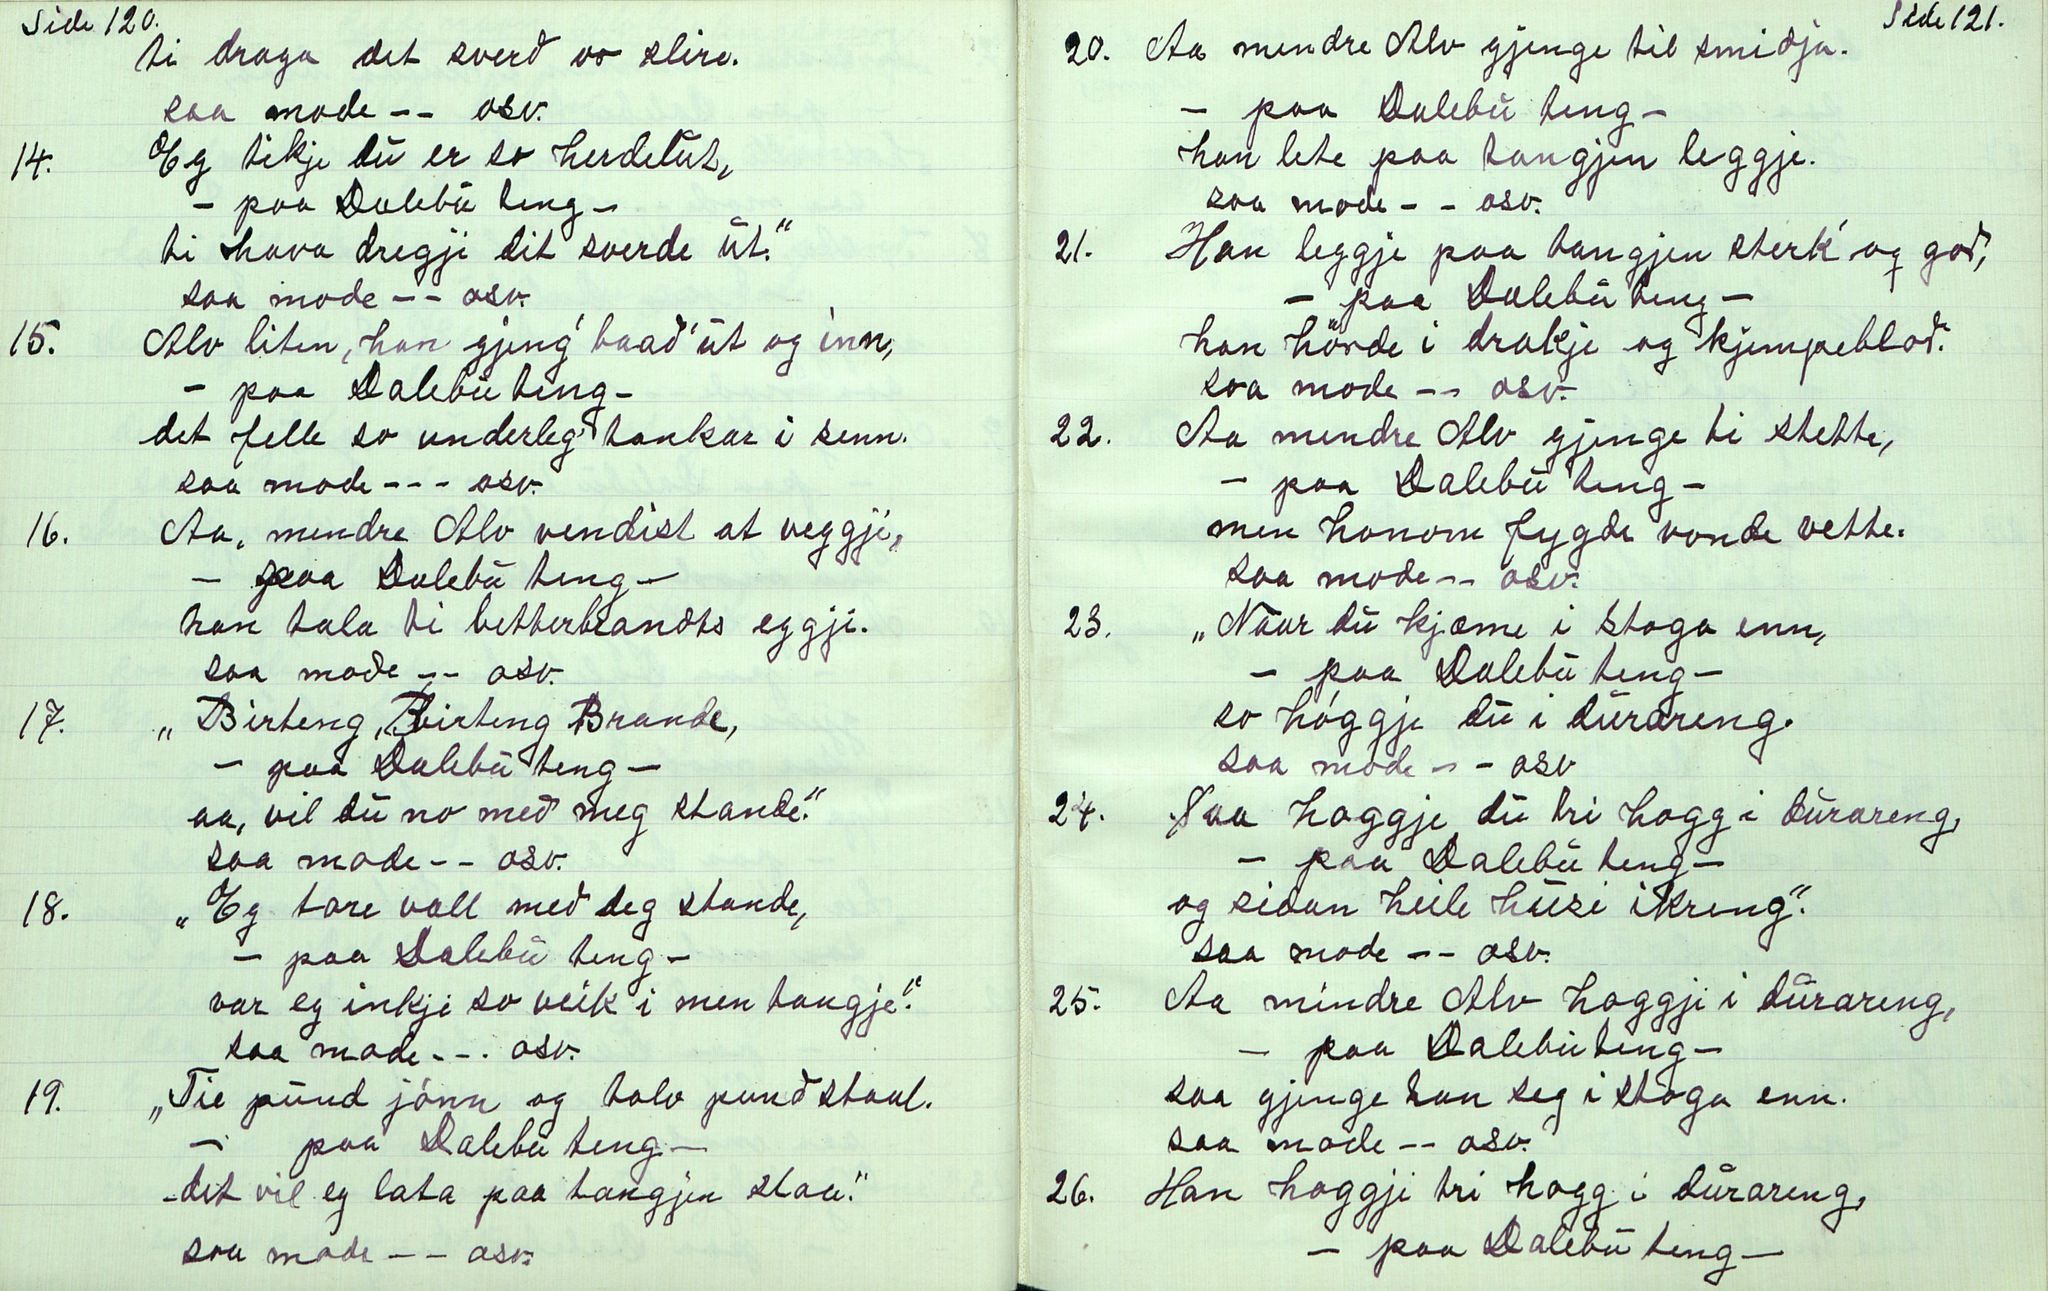 Side 120.
ti draga det sverð os slire.
saa mode -- osv.
14. Eg tikje dū er so herdelūt,
- paa Dalebū teng -
ti hava dregji dit sverde ūt."
saa mode -- osv.
15. Alv liten, han gjeng' baað' ūt og inn,
- paa Dalebū teng -
det felle so underleg' tankar i senn.
saa mode --- osv.
16. Aa, mendre Alv vendist at veggji,
- paa Dalebū teng -
han tala ti betterbrandts eggji.
saa mode -- osv.
17. „Birteng, Birteng Brande,
- paa Dalebū teng -
aa, vil dū no með meg stande."
saa mode -- osv.
18. „Eg tore vall með deg stande,
- paa Dalebū teng -
var eg inkji so veik i men tangje."
saa mode --- osv.
19. „Tie pūnd jónn og tolv punð staal.
- paa Dalebū teng -
det vil eg lata paa tangjen slaa."
saa mode -- osv.
Side 121.
20. Aa mendre Alv gjenge til smiðja.
- paa Dalebū teng -
han lete paa tangjen leggje.
saa mode -- osv.
21. Han leggje paa tangjen sterk' og goð,
- paa Dalebū teng -
han hörde i drakje og kjempebloð.
saa mode -- osv.
22. Aa mendre Alv gjenge ti stette,
- paa Dalebū teng -
men honom fygde vonde vette.
saa mode -- osv.
23. „Naar dū kjæme i stoga enn,
- paa Dalebū teng -
so hóggje dū i dūrareng.
saa mode -- osv
24. Saa hoggje dū tri hogg i dūrareng,
- paa Dalebū teng -
og siðan heile hūsi ikreng".
saa mode -- osv.
25. Aa mindre Alv hoggji i dūrareng,
- paa Dalebū teng -
saa gjenge han seg i stoga enn.
saa mode -- osv.
26. Han hoggji tri hogg i dūrareng,
- paa Dalebū teng -